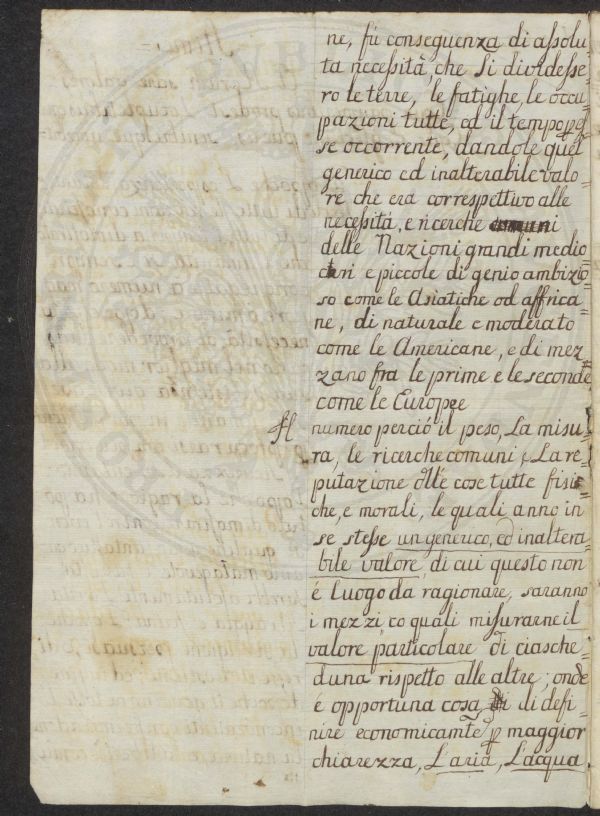 ne, fù conseguenza di assolu
ta necessità, che si dividesse
ro le terre, le fatighe, le occu
pazioni tutte, ed il tempo
se occorrente, dandole quel
generico ed inalterabile valo
re che era correspettivo alle
necessità, e ricerche
delle Nazioni grandi medio
cri e piccole di genio ambizio
so come le Asiatiche od affrica
ne, di naturale e moderato
come le Americane, e di mez
zano fra le prime e le seconde
come le Europee
Il numero perciò il peso, La misu
ra, le ricerche comuni, La re
putazione delle cose tutte fisi
che, e morali, le quali anno in
se stesse un generico, ed inaltera
bile valore, di cui questo non
è luogo da ragionare, saranno
i mezzi co quali misurarne il
valore particolare di ciasche
duna rispetto alle altre; onde
è opportuna cosa di defi
nire economicamte p maggior
chiarezza, L'aria, L'acqua